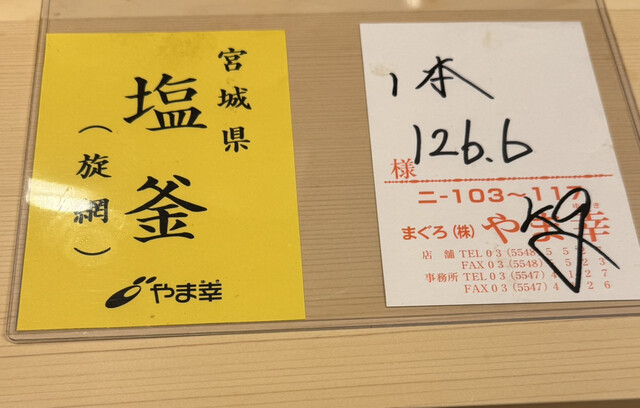 宮城県
塩釜
（旋網）
やま幸
1本
126.6
kg
様
ニ-103〜117
まぐろ(株)やま幸
店舗 TEL 03 (5548)
FAX 03 (5548)
事務所 TEL 03 (5547) 4
FAX 03 (5547) 4